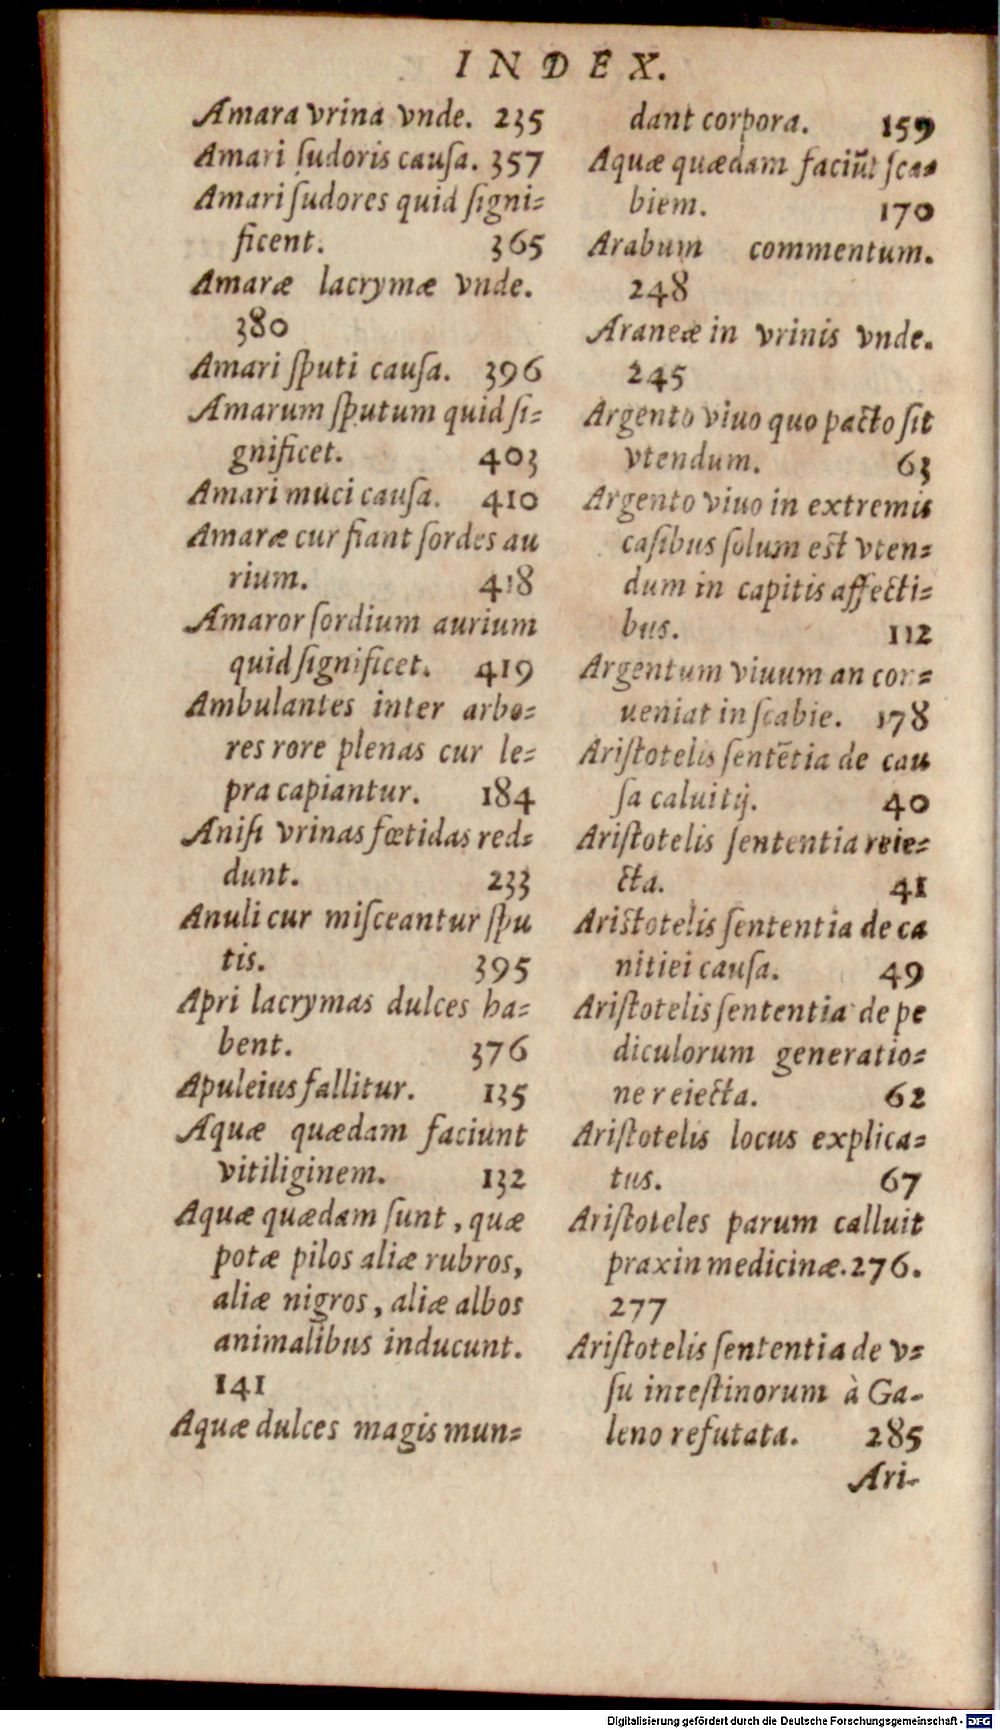 INDEX.
Amara vrina vnde. 235
Amari ſudoris cauſa. 357
Amari ſudores quid ſigni-
ficent. 365
Amaræ lacrymæ vnde.
380
Amari ſputi cauſa. 396
Amarum ſputum quid ſi-
gnificet. 403
Amari muci cauſa. 410
Amaræ cur fiant ſordes au
rium. 418
Amaror ſordium aurium
quid ſignificet. 419
Ambulantes inter arbo-
res rore plenas cur le-
pra capiantur. 184
Aniſi vrinas fœtidas red-
dunt. 233
Anuli cur miſceantur ſpu
tis. 395
Apri lacrymas dulces ha-
bent. 376
Apuleius fallitur. 135
Aquæ quædam faciunt
vitiliginem. 132
Aquæ quædam ſunt, quæ
potæ pilos aliæ rubros,
aliæ nigros, aliæ albos
animalibus inducunt.
141
Aquæ dulces magis mun-
dant corpora. 159
Aquæ quædam faciūt ſca-
biem. 170
Arabum commentum.
248
Araneæ in vrinis vnde.
245
Argento viuo quo pacto ſit
vtendum. 63
Argento viuo in extremis
caſibus ſolum est vten-
dum in capitis affecti-
bus. 112
Argentum viuum an con-
ueniat in ſcabie. 178
Ariſtotelis ſentētia de cau
ſa caluitij. 40
Ariſtotelis ſententia reie-
cta. 41
Aristotelis ſententia de ca
nitiei cauſa. 49
Ariſtotelis ſententia de pe
diculorum generatio-
ne reiecta. 62
Ariſtotelis locus explica-
tus. 67
Ariſtoteles parum calluit
praxin medicinæ. 276.
277
Ariſtotelis ſententia de v-
ſu inteſtinorum à Ga-
leno refutata. 285
Ari-
Digitalisierung gefördert durch die Deutsche Forschungsgemeinschaft - DFG